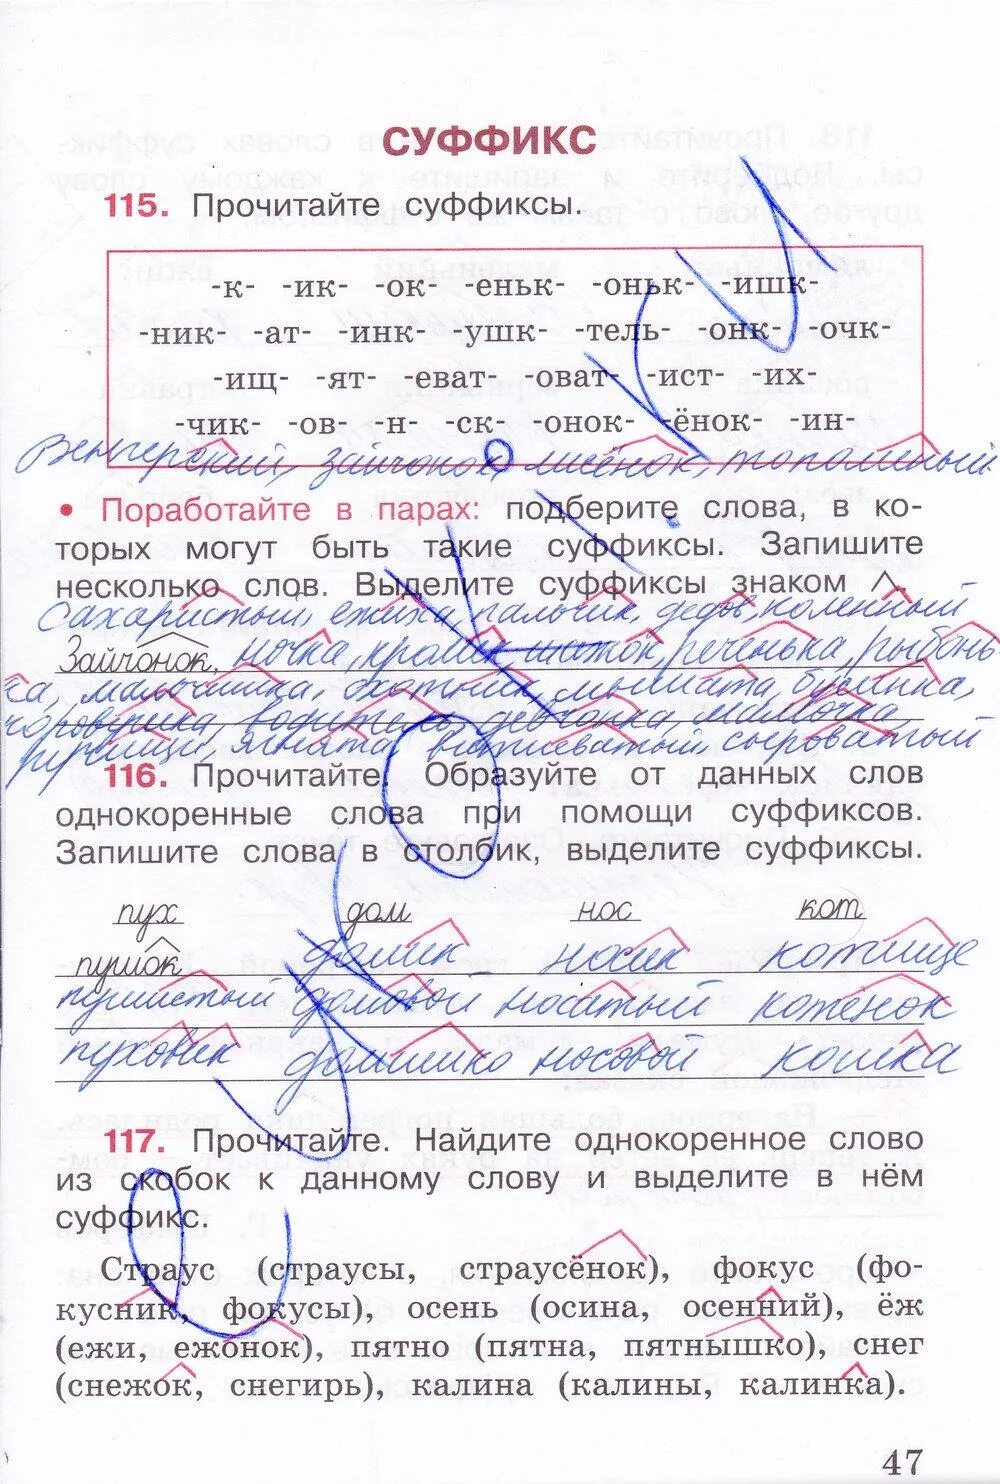 СУФФИКС
115. Прочитайте суффиксы.
-к- -ик- -ок- -еньк- -оньк- -ишк-
-ник- -ат- -инк- -ушк- -тель- -онк- -очк-
-ищ- -ят- -еват- -оват- -ист- -их-
-чик- -ов- -н- -ск- -онок- -ёнок- -ин-
Венгерский, зайчонок, лисёнок, тополиный
• Поработайте в парах: подберите слова, в ко-
торых могут быть такие суффиксы. Запишите
несколько слов. Выделите суффиксы знаком ^.
Сахаристый, ежиха, пальчик, дедов, коленный
Зайчонок, ночка, кролик, шаток, реченька, рыбонь-
ка, мальчишка, охотник, мышата, бусинка,
коровушка, водитель, девчонка, мамочка,
ручищи, ягнята, сыроватый
116. Прочитайте. Образуйте от данных слов
однокоренные слова при помощи суффиксов.
Запишите слова в столбик, выделите суффиксы.
пух дом нос кот
пушок домик носик котище
пушистый домовой носатый котёнок
пуховик домишко носовой кошка
117. Прочитайте. Найдите однокоренное слово
из скобок к данному слову и выделите в нём
суффикс.
Страус (страусы, страусёнок), фокус (фо-
кусник, фокусы), осень (осина, осенний), ёж
(ежи, ежонок), пятно (пятна, пятнышко), снег
(снежок, снегирь), калина (калины, калинка).
47